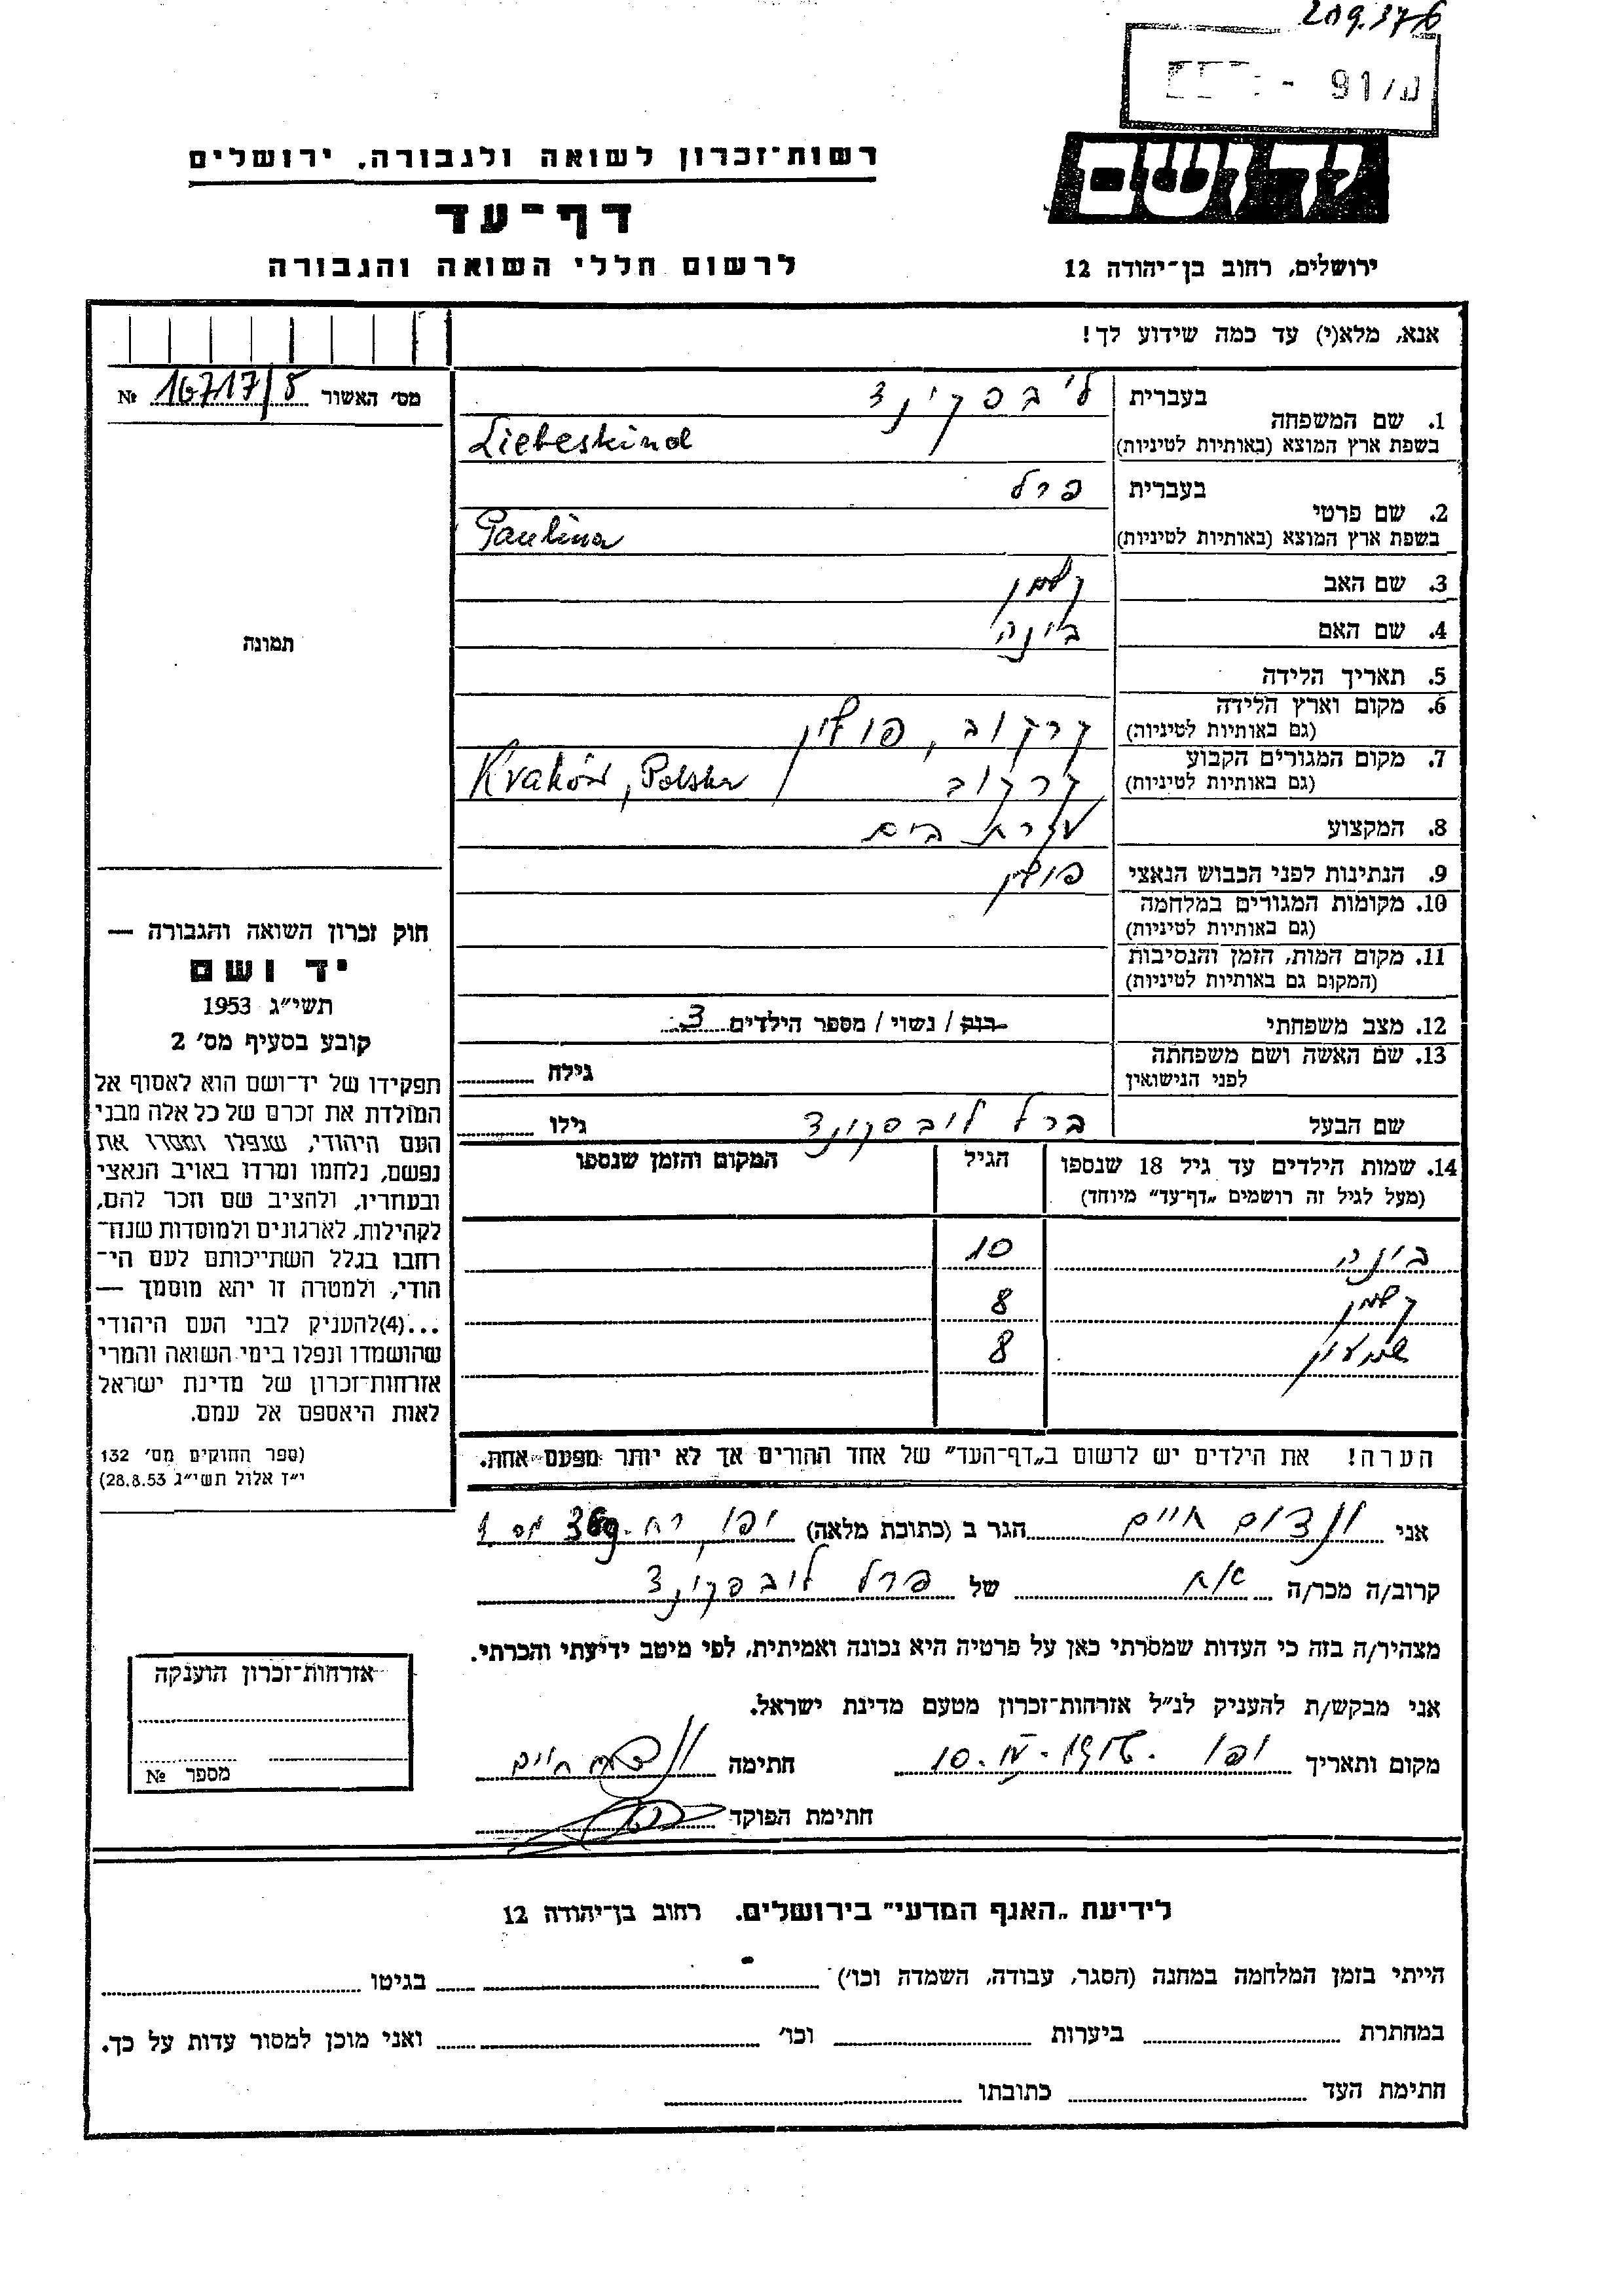 209.376
91/מ
רשות־זכרון לשואה ולגבורה. ירושלים
יד ושם
דף־עד
לרשום חללי השואה והגבורה
ירושלים, רחוב בן־יהודה 12
אנא, מלא(י) עד כמה שידוע לך!
מס׳ האשור 16717/5 №
1. שם המשפחה
בעברית ליבסקינד
בשפת ארץ המוצא (באותיות לטיניות) Liebeskind
2. שם פרטי
בעברית פרל
בשפת ארץ המוצא (באותיות לטיניות) Paulina
3. שם האב קלמן
4. שם האם בינה
5. תאריך הלידה
6. מקום וארץ הלידה
(גם באותיות לטיניות) קרקוב, פולין
7. מקום המגורים הקבוע
(גם באותיות לטיניות) קרקוב Kraków, Polska
8. המקצוע עקרת בית
9. הנתינות לפני הכבוש הנאצי פולין
10. מקומות המגורים במלחמה
(גם באותיות לטיניות)
11. מקום המות, הזמן והנסיבות
(המקום גם באותיות לטיניות)
12. מצב משפחתי רווק / נשוי / מספר הילדים 3
13. שם האשה ושם משפחתה
לפני הנישואין גילה
שם הבעל ברל ליבסקינד גילו
14. שמות הילדים עד גיל 18 שנספו
(מעל לגיל זה רושמים „דף־עד״ מיוחד)
הגיל
המקום והזמן שנספו
בינה 10
קלמן 8
שמעון 8
הערה! את הילדים יש לרשום ב„דף־העד״ של אחד ההורים אך לא יותר מפעם אחת.
תמונה
חוק זכרון השואה והגבורה —
יד ושם
תשי״ג 1953
קובע בסעיף מס׳ 2
תפקידו של יד־ושם הוא לאסוף אל
המולדת את זכרם של כל אלה מבני
העם היהודי, שנפלו ומסרו את
נפשם, נלחמו ומרדו באויב הנאצי
ובעוזריו, ולהציב שם וזכר להם,
לקהילות, לארגונים ולמוסדות שנח־
רבו בגלל השתייכותם לעם הי־
הודי, ולמטרה זו יהא מוסמך —
...(4)להעניק לבני העם היהודי
שהושמדו ונפלו בימי השואה והמרי
אזרחות־זכרון של מדינת ישראל
לאות היאספם אל עמם.
(ספר החוקים מס׳ 132
י״ז אלול תשי״ג 28.8.53)
אני חיים הגר ב (כתובת מלאה) יפו, רח. 369
קרוב/ה מכר/ה אח של פרל ליבסקינד
מצהיר/ה בזה כי העדות שמסרתי כאן על פרטיה היא נכונה ואמיתית, לפי מיטב ידיעתי והכרתי.
אני מבקש/ת להעניק לנ״ל אזרחות־זכרון מטעם מדינת ישראל.
מקום ותאריך יפו 10.IV.1956 חתימה חיים
חתימת הפוקד
אזרחות־זכרון הוענקה
מספר №
לידיעת „האגף המדעי״ בירושלים. רחוב בן־יהודה 12
הייתי בזמן המלחמה במחנה (הסגר, עבודה, השמדה וכו׳) בגיטו
במחתרת ביערות וכו׳ ואני מוכן למסור עדות על כך.
חתימת העד כתובתו